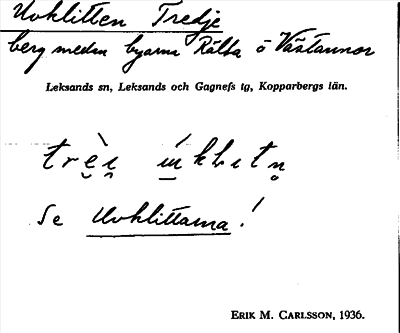 Uvklitten Tredje
berg medan byarna Rälta o Västannor
Leksands sn, Leksands och Gagnefs tg, Kopparbergs län.
Se Uvklittarna!
ERIK M. CARLSSON, 1936.